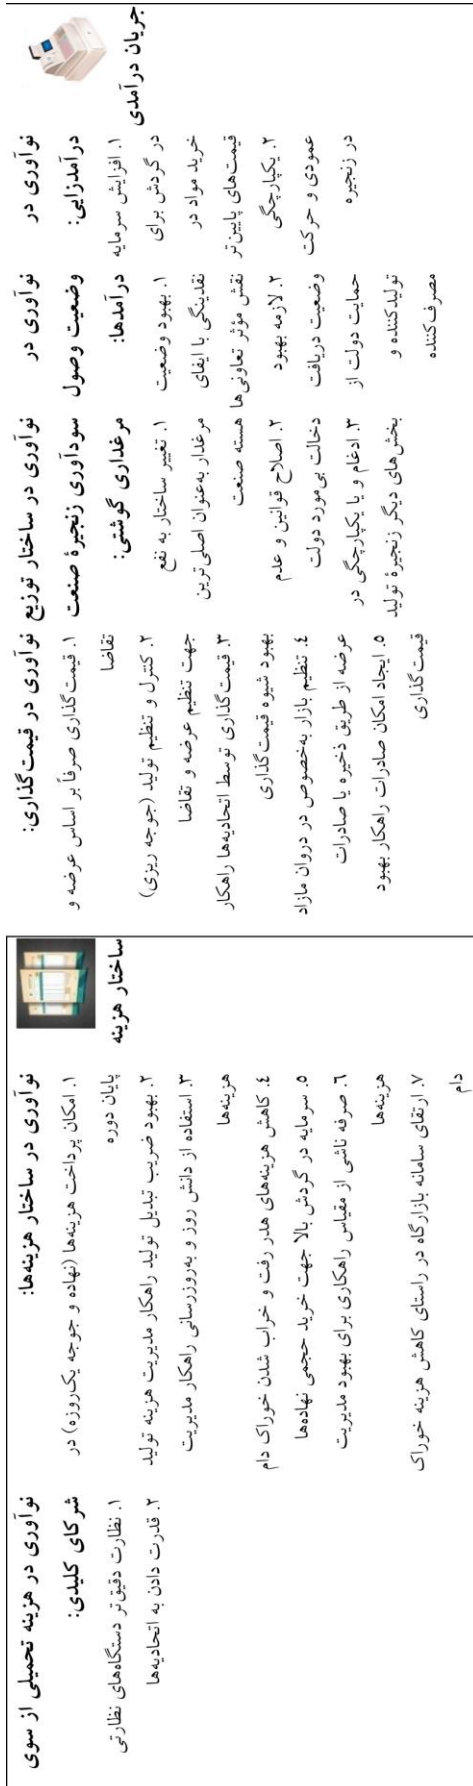 جریان درآمدی
نوآوری در
درآمدزایی:
۱. افزایش سرمایه
در گردش برای
خرید مواد در
قیمت‌های پایین‌تر
۲. یکپارچگی
عمودی و حرکت
در زنجیره
نوآوری در
وضعیت وصول
درآمدها:
۱. بهبود وضعیت
نقدینگی با ایفای
نقش مؤثر تعاونی‌ها
۲. لازمه بهبود
وضعیت دریافت
حمایت دولت از
تولیدکننده و
مصرف‌کننده
نوآوری در ساختار توزیع
سودآوری زنجیرهٔ صنعت
مرغداری گوشتی:
۱. تغییر ساختار به نفع
مرغدار به‌عنوان اصلی‌ترین
هسته صنعت
۲. اصلاح قوانین و عدم
دخالت بی‌مورد دولت
۳. ادغام و یا یکپارچگی در
بخش‌های دیگر زنجیرهٔ تولید
نوآوری در قیمت‌گذاری:
۱. قیمت‌گذاری صرفاً بر اساس عرضه و
تقاضا
۲. کنترل و تنظیم تولید (جوجه ریزی)
جهت تنظیم عرضه و تقاضا
۳. قیمت‌گذاری توسط اتحادیه‌ها راهکار
بهبود شیوه قیمت‌گذاری
۴. تنظیم بازار به‌خصوص در دروان مازاد
عرضه از طریق ذخیره یا صادرات
۵. ایجاد امکان صادرات راهکار بهبود
قیمت‌گذاری
ساختار هزینه
نوآوری در ساختار هزینه‌ها:
۱. امکان پرداخت هزینه‌ها (نهاده و جوجه یک‌روزه) در
پایان دوره
۲. بهبود ضریب تبدیل تولید راهکار مدیریت هزینه تولید
۳. استفاده از دانش روز و به‌روزرسانی راهکار مدیریت
هزینه‌ها
۴. کاهش هزینه‌های هدر رفت و خراب شدن خوراک دام
۵. سرمایه در گردش بالا جهت خرید حجمی نهاده‌ها
۶. صرفه ناشی از مقیاس راهکاری برای بهبود مدیریت
هزینه‌ها
۷. ارتقای سامانه بازارگاه در راستای کاهش هزینه خوراک
دام
نوآوری در هزینه تحمیلی از سوی
شرکای کلیدی:
۱. نظارت دقیق‌تر دستگاه‌های نظارتی
۲. قدرت دادن به اتحادیه‌ها